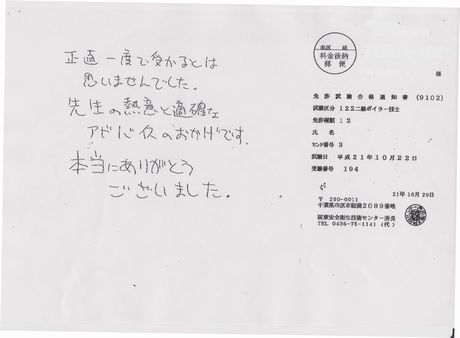 正直一度で受かるとは
思いませんでした。
先生の熱意と適確な
アドバイスのおかげです。
本当にありがとう
ございました。
料金後納
郵便
様
免許試験合格通知書 (9102)
試験区分 122二級ボイラー技士
免許種類 12
氏名
センタ番号 3
試験日 平成21年10月22日
受験番号 194
21年10月29日
〒 290-0011
千葉県市原市能満2089番地
関東安全衛生技術センター所長
TEL 0436-75-1141 (代)